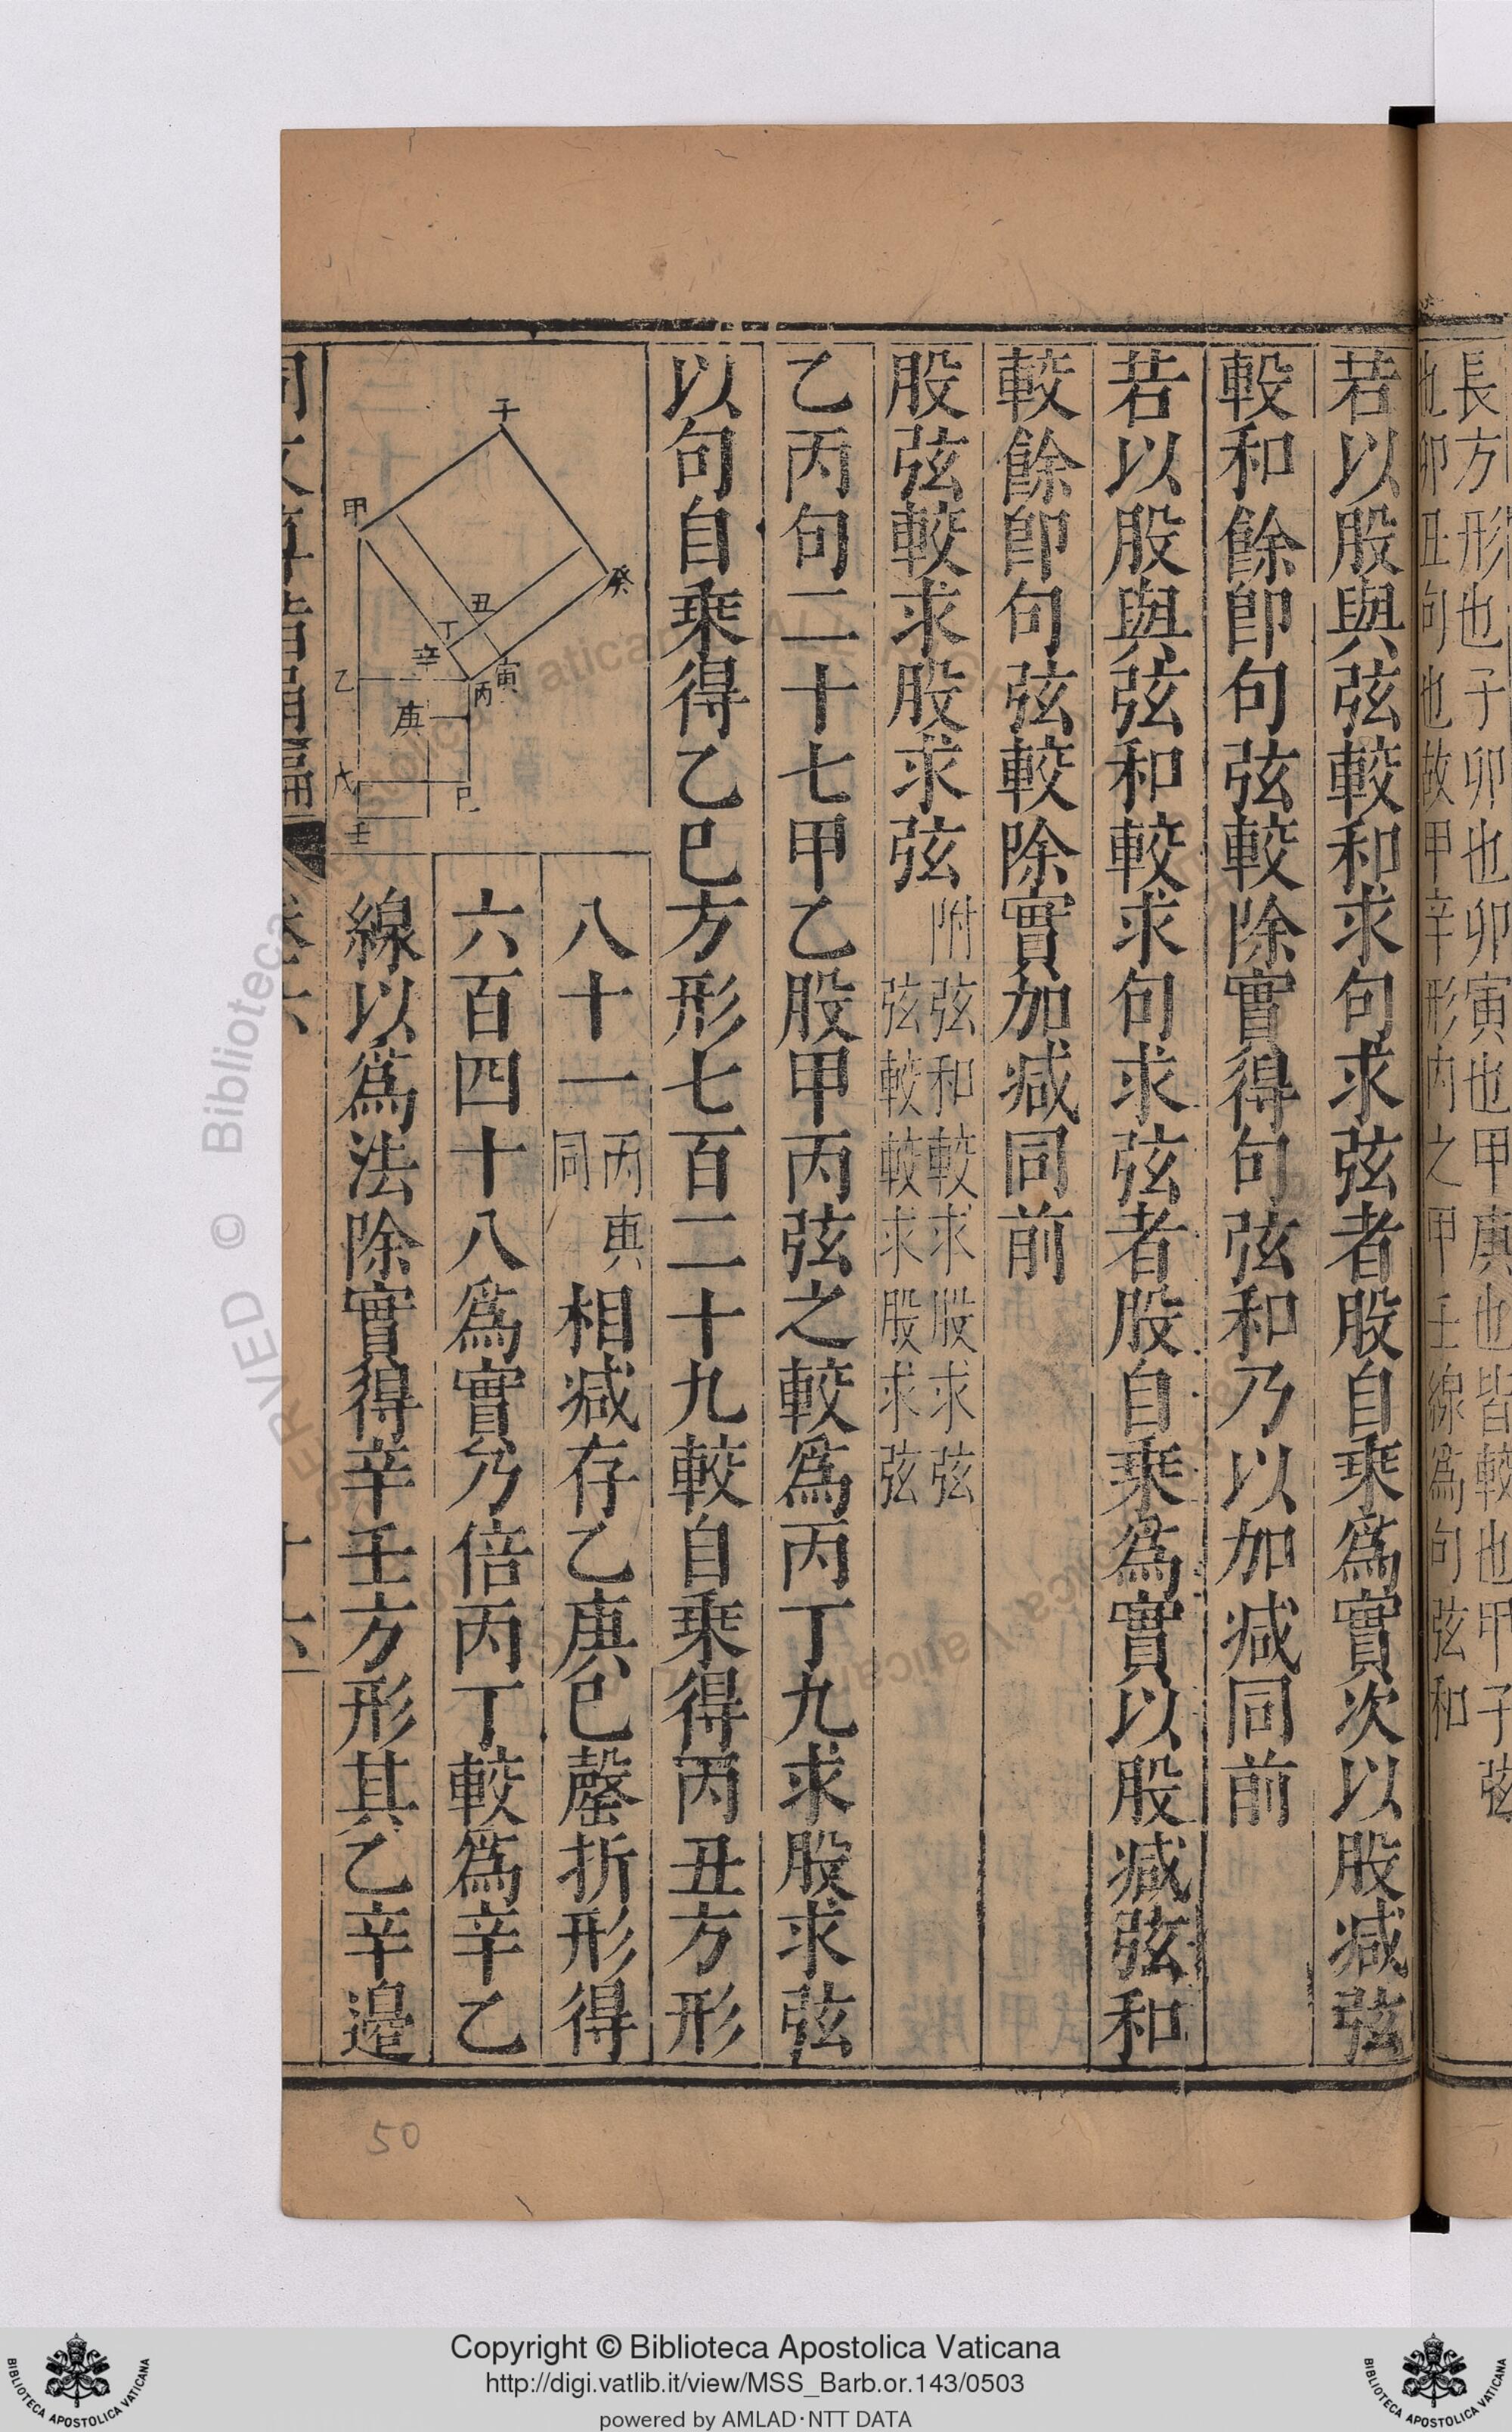 長方形也子卯也卯寅也甲庚也皆較也甲子弦
也卯丑句也故甲辛形内之甲壬線爲句弦和
若以股與弦較和求句求弦者股自乘爲實次以股減弦
較和餘即句弦較除實得句弦和乃以加減同前
若以股與弦和較求句求弦者股自乘爲實以股減弦和
較餘即句弦較除實加減同前
股弦較求股求弦 附弦和較求股求弦
弦較較求股求弦
乙丙句二十七甲乙股甲丙弦之較爲丙丁九求股求弦
以句自乘得乙巳方形七百二十九較自乘得丙丑方形
八十一丙庚同相減存乙庚巳罄折形得
六百四十八爲實乃倍丙丁較爲辛乙
線以爲法除實得辛壬方形其乙辛邉
子
甲
癸
丑
丁
辛
寅
丙
乙
庚
戊
巳
壬
50
Copyright © Biblioteca Apostolica Vaticana
http://digi.vatlib.it/view/MSS_Barb.or.143/0503
powered by AMLAD·NTT DATA
BIBLIOTECA APOSTOLICA VATICANA
BIBLIOTECA APOSTOLICA VATICANA